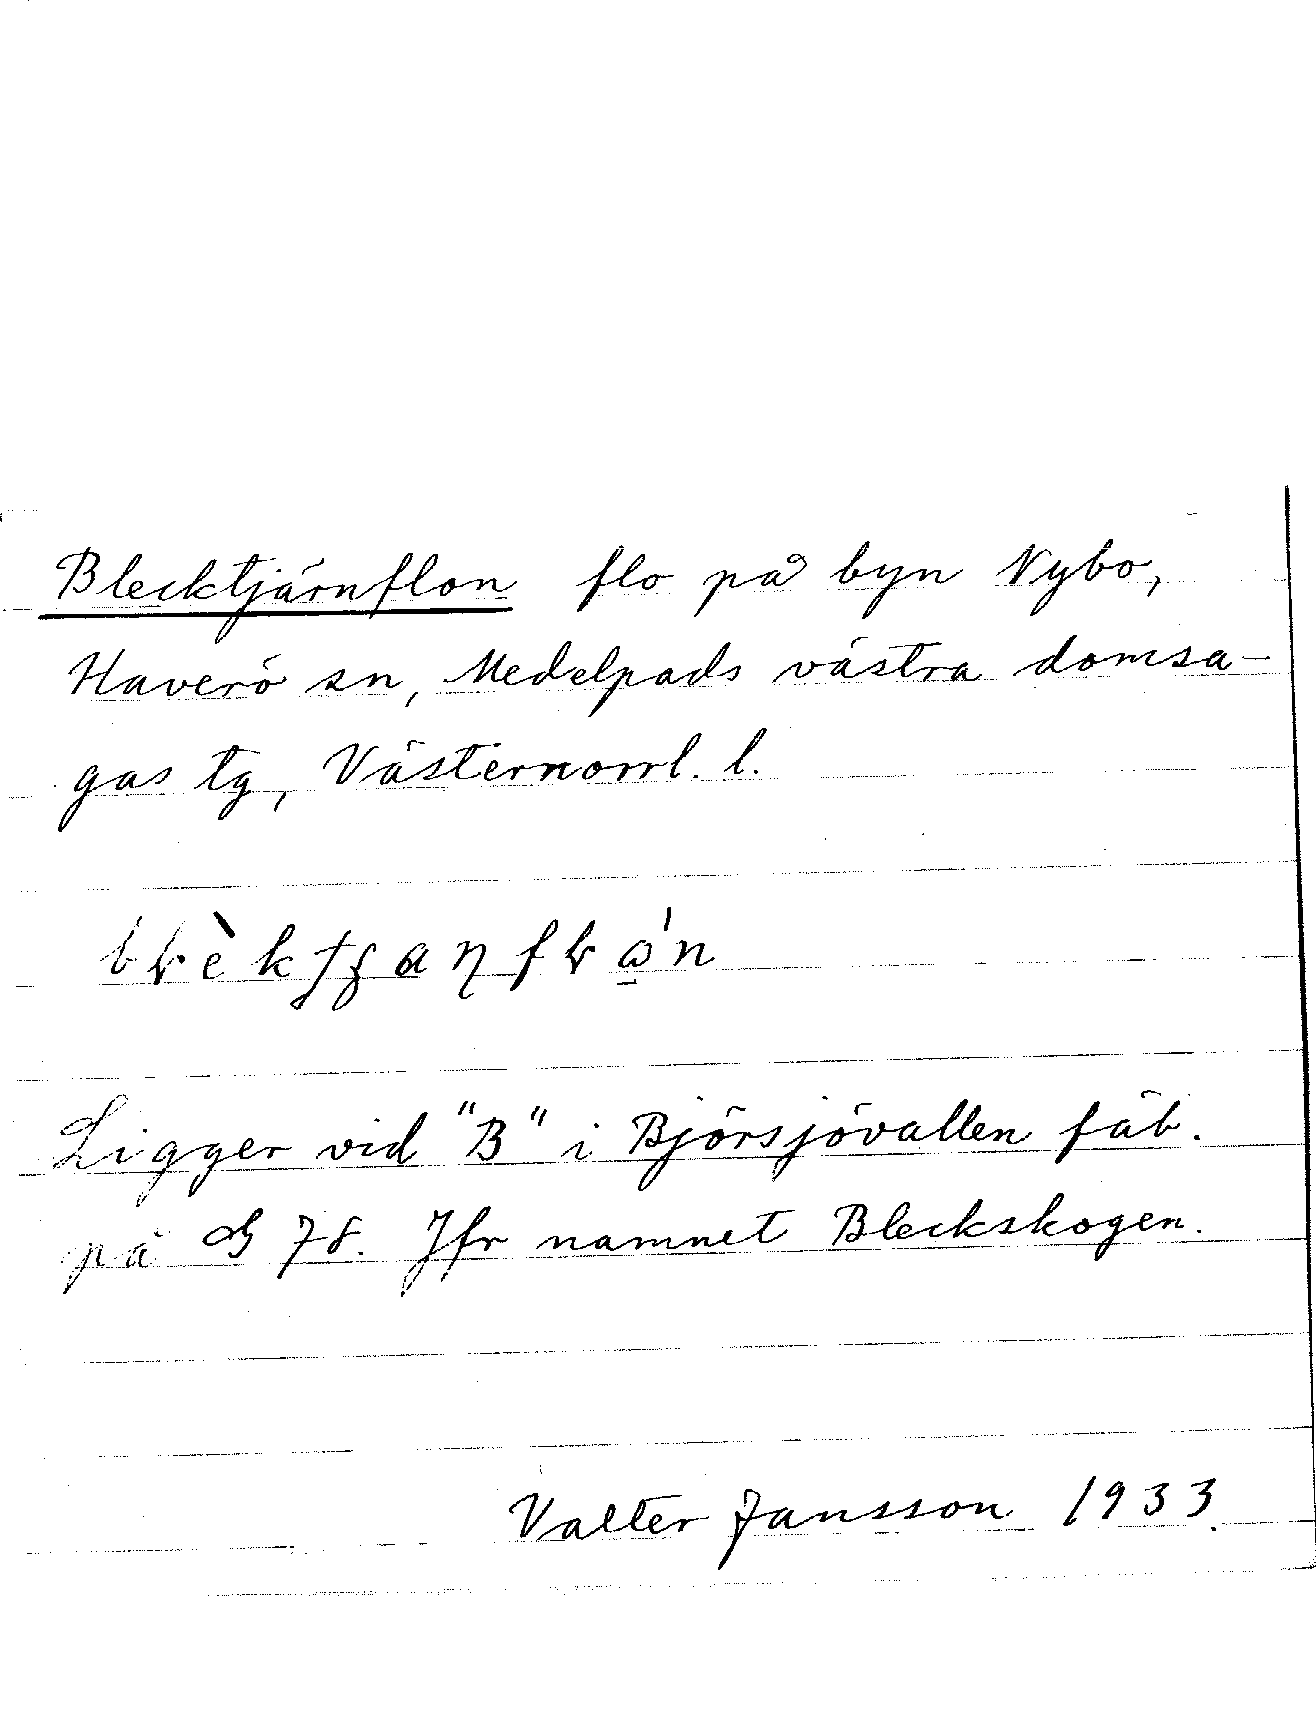 Blecktjärnflon flo på byn Nybo,
Haverö sn, Medelpads västra domsa-
gas tg, Västernorrl. l.
Ligger vid "B" i Björsjövallen fäb.
på G 78. Jfr namnet Bleckskogen.
Valter Jansson 1933.